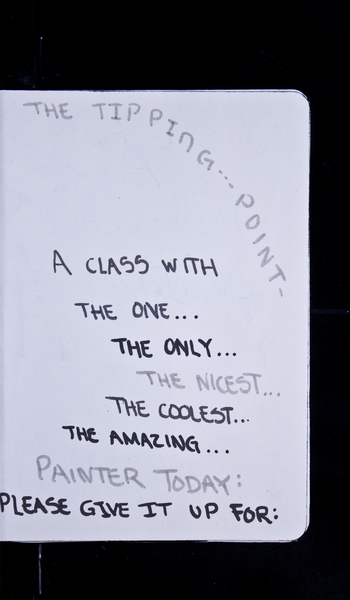 THE TIPPING... POINT-
A CLASS WITH
THE ONE...
THE ONLY...
THE NICEST...
THE COOLEST...
THE AMAZING...
PAINTER TODAY:
PLEASE GIVE IT UP FOR: